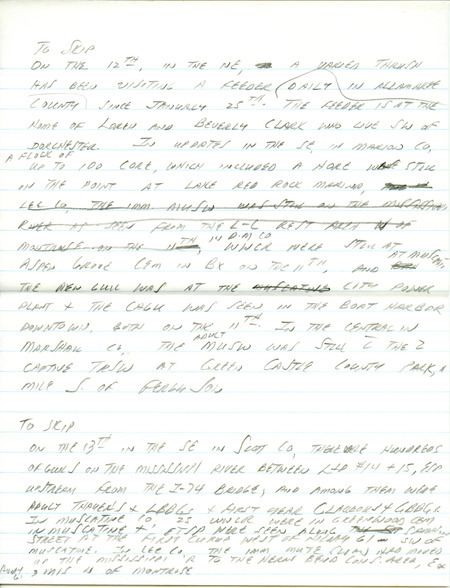 TO SKIP
ON THE 12TH, IN THE NE, A VARIED THRUSH
HAS BEEN VISITING A FEEDER DAILY IN ALLAMAKEE
COUNTY SINCE JANUARY 25TH. THE FEEDER IS AT THE
HOME OF LOREN AND BEVERLY CLARK WHO LIVE SW OF
DORCHESTER. IN UPDATES IN THE SE, IN MARION CO,
A FLOCK OF
UP TO 100 CORE, WHICH INCLUDED A HORE WERE STILL
IN THE POINT AT LAKE RED ROCK MARINA,
LEE CO, THE IMM MUSW WAS STILL ON THE MISSISSIPPI
RIVER AS SEEN FROM THE REST AREA N OF
MONTROSE ON THE 11TH, IN D.M CO
WWCR WERE STILL AT
ASPEN GROVE CEM IN BX ON THE 11TH, AND AT MUSCATINE
THE NEW GULL WAS AT THE CITY POWER
PLANT & THE CAGU WAS SEEN IN THE BOAT HARBOR
DOWNTOWN, BOTH ON THE 11TH. IN THE CENTRAL IN
MARSHALL CO, THE ADULT MUSW WAS STILL THE 2
CAPTIVE TRSW AT GREEN CASTLE COUNTY PARK, A
MILE S. OF FERGUSON
TO SKIP
ON THE 13TH IN THE SE IN SCOTT CO, THERE WERE HUNDREDS
OF GULLS ON THE MISSISSIPPI RIVER BETWEEN L+D #14 + 15, ESP
UPSTREAM FROM THE I-74 BRIDGE, AND AMONG THEM WERE
ADULT THAYER'S & LBBGS & FIRST YEAR GLAUCOUS & GBBGS.
IN MUSCATINE CO, 25 WWCR WERE IN GREENWOOD CEM
IN MUSCATINE & ETSP WERE SEEN ALONG
STREET AT THE FIRST CURVE WEST OF HIGHWAY 61 SW OF
MUSCATINE. IN LEE CO, THE IMM MUTE SWAN HAD MOVED
UP THE MISSISSIPPI R TO THE CONS. AREA,
3 MIS N OF MONTROSE